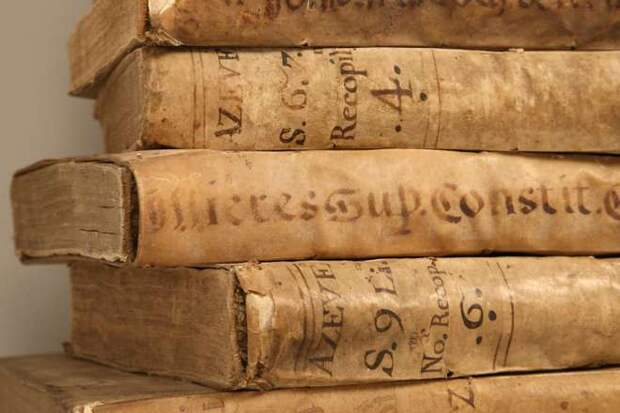 AZEVE
S. 6. 7.
Recopil
.4.
Mieres Sup. Constit. C
AZEVE
S. 9 Li.
No. Recop
.6.